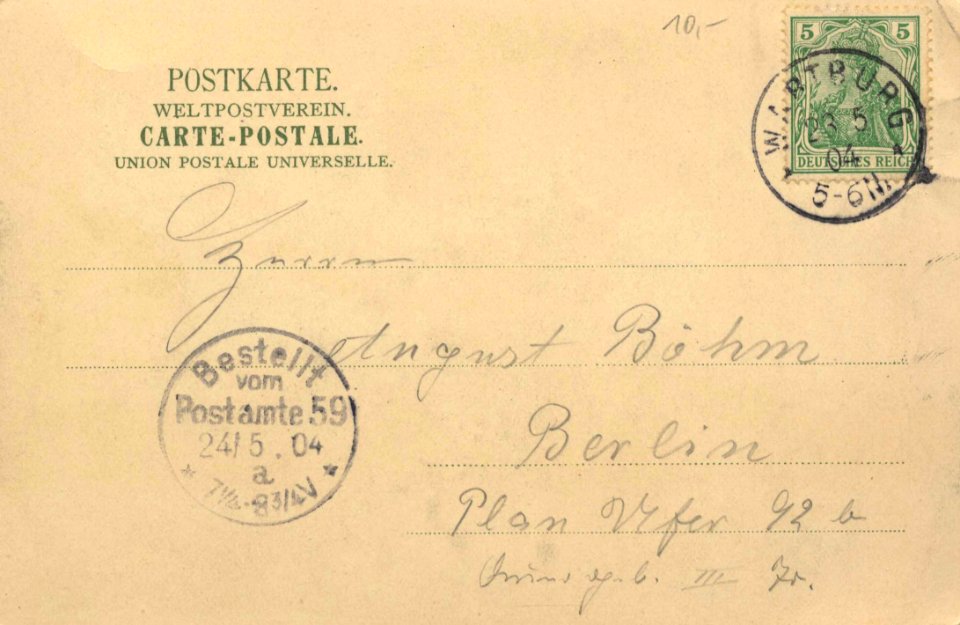 10,-
5 5
DEUTSCHES REICH
WARTBURG
23 5
04
5-6 N.
POSTKARTE.
WELTPOSTVEREIN.
CARTE-POSTALE.
UNION POSTALE UNIVERSELLE.
Herrn
August Böhm
Berlin
Plan Ufer 92 b
III Tr.
Bestellt
vom
Postamte 59
24/5.04
a
7 1/4-8 3/4 V